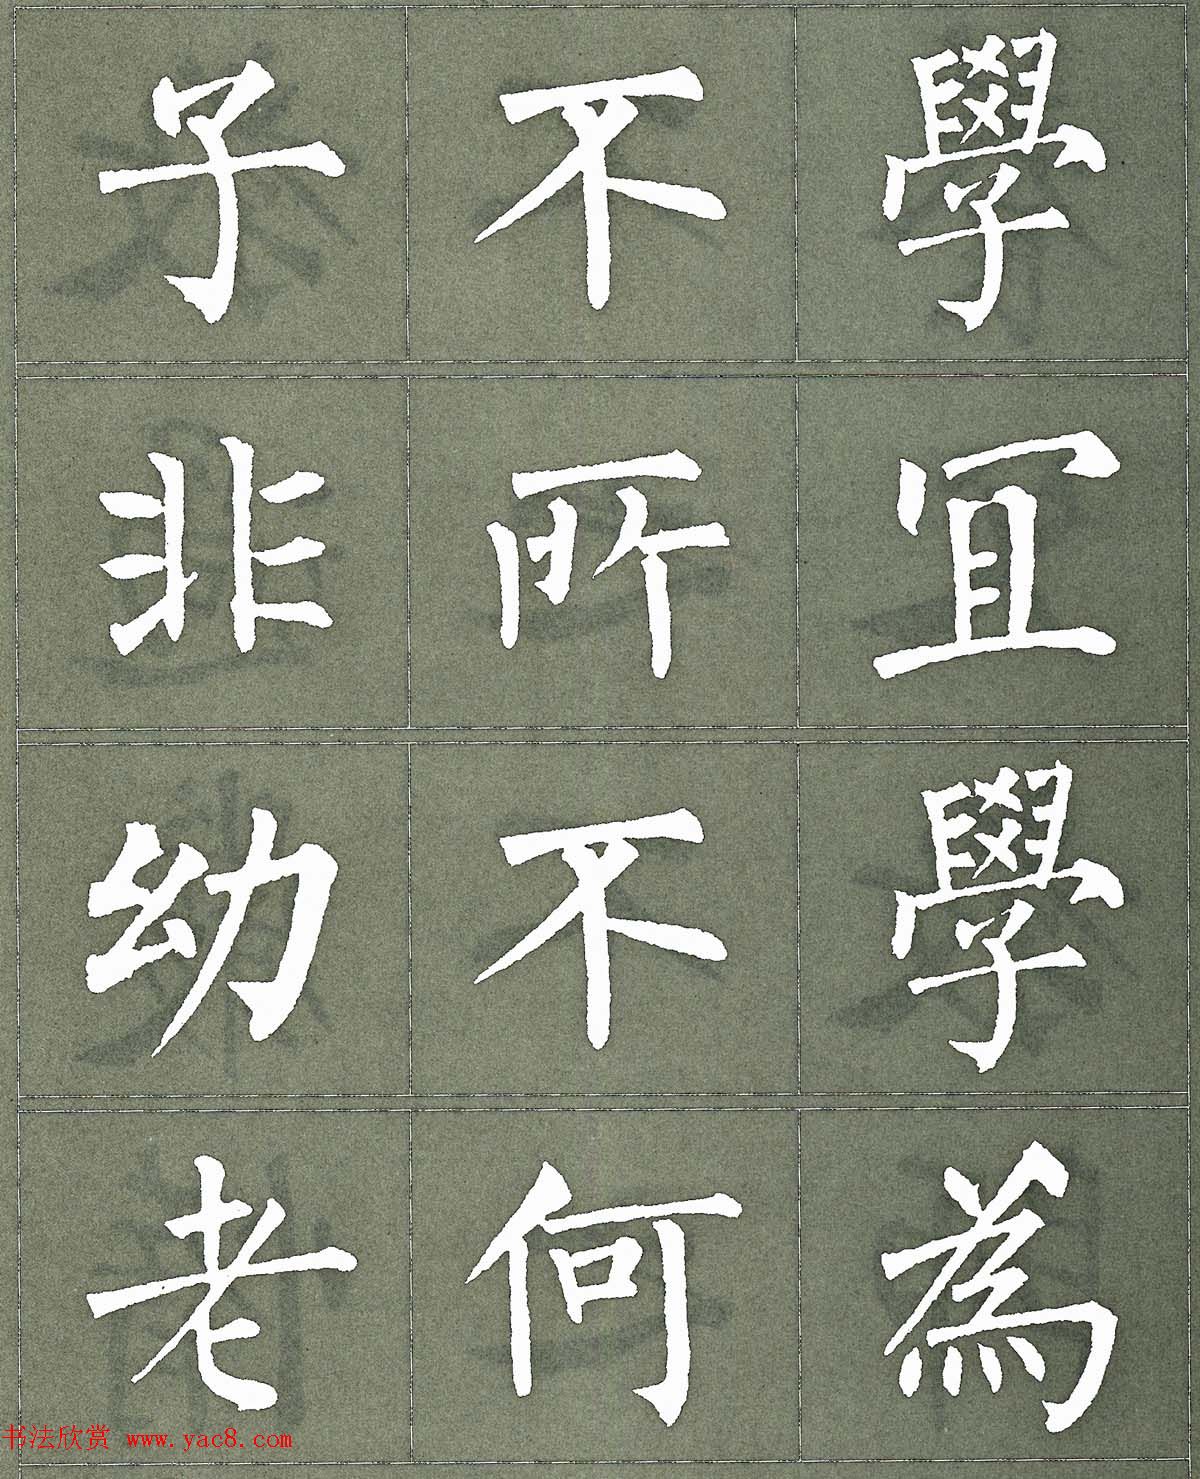 子不學
非所宜
幼不學
老何為
书法欣赏 www.yac8.com